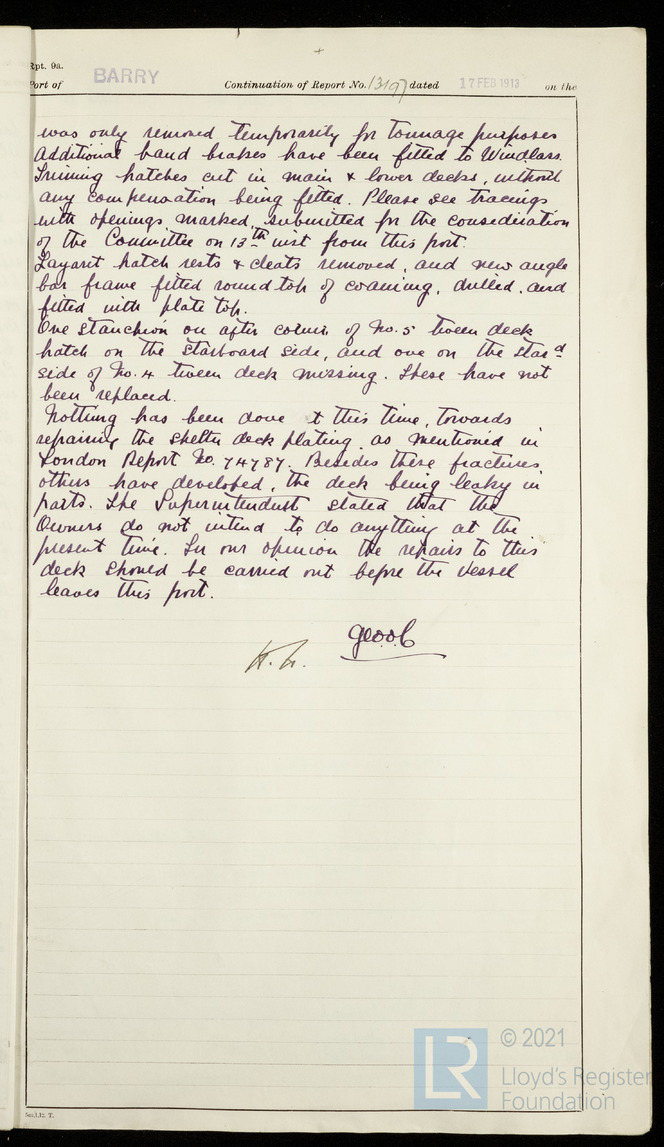 Rpt. 9a.
Port of BARRY Continuation of Report No. 13197 dated 17 FEB 1913 on the
was only removed temporarily for tonnage purposes
Additional band brakes have been fitted to Windlass.
Triming hatches cut in main & lower decks, without
any compensation being fitted. Please see tracings
with openings marked, submitted for the consideration
of the Committee on 13th inst from this port.
Lazaret hatch rests & cleats removed, and new angle
bar frame fitted round top of coaming, drilled and
fitted with plate top.
One stanchion on after comin of No. 5 tween deck
hatch on the starboard side, and one on the starđ
side of No. 4 tween deck missing. These have not
been replaced.
Nothing has been done at this time, towards
repairing the shelter deck plating as mentioned in
London Report No. 74787. Besides these fractures,
others have developed, the deck being leaky in
parts. The Superintendent stated that the
Owners do not intend to do anything at the
present time. In our opinion the repairs to this
deck should be carried out before the vessel
leaves this port.
LR
© 2021
Lloyd's Register
Foundation